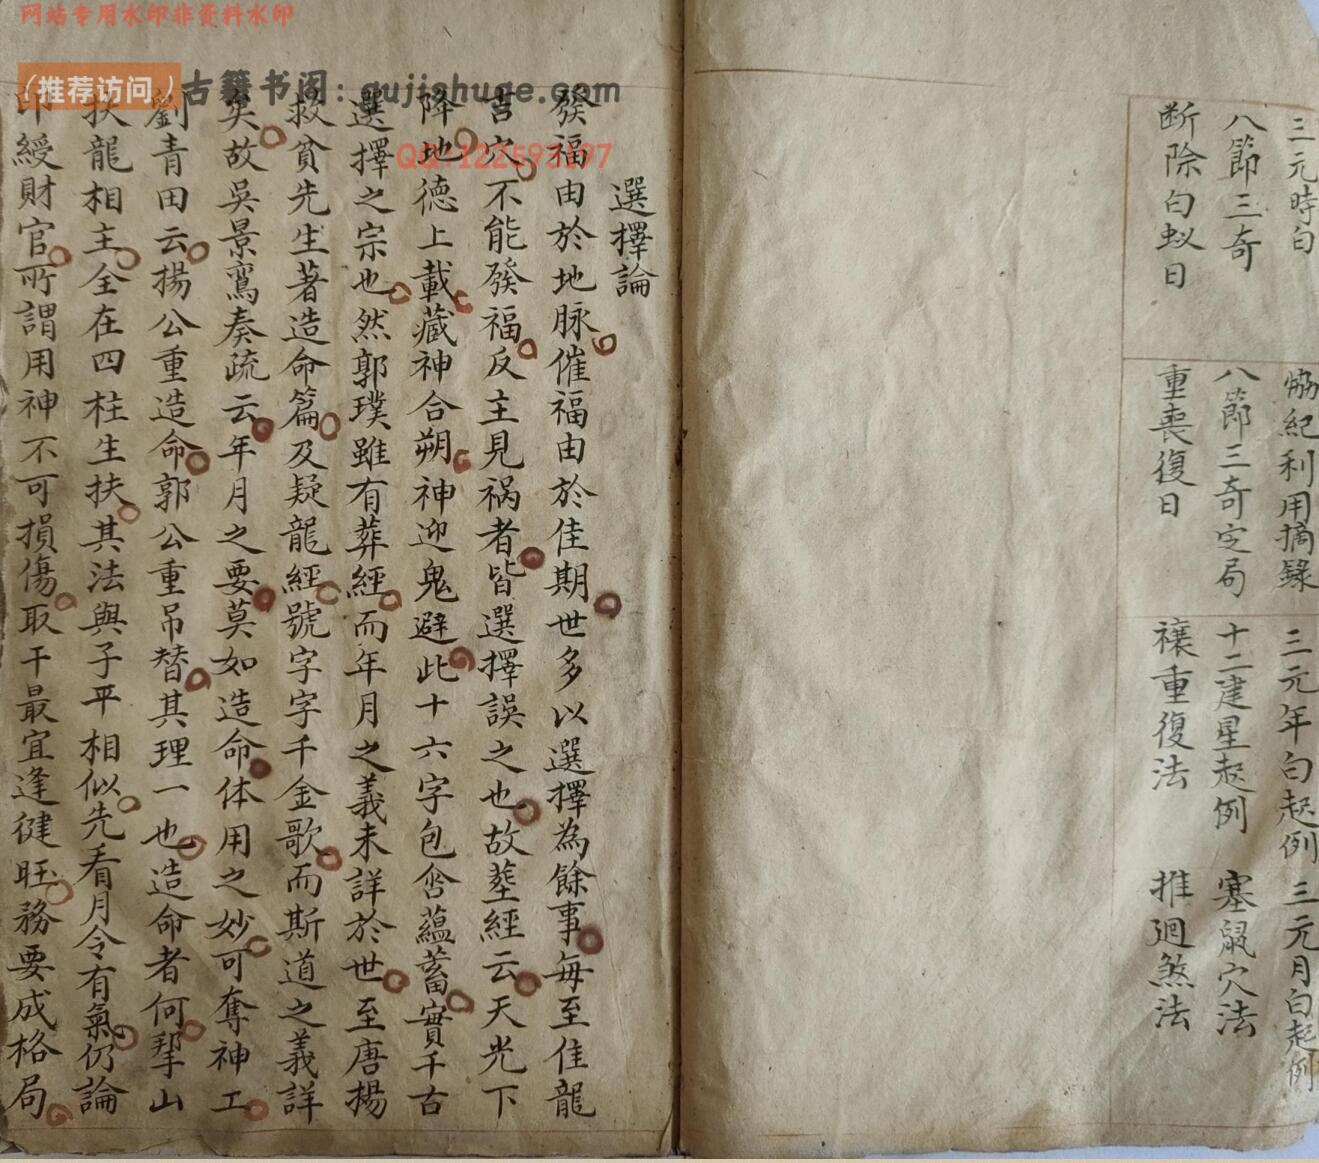 网站专用水印非资料水印
（推荐访问）古籍书阁：gujishuge.com
QQ:122593197
三元時白　協紀利用摘錄　三元年白起例　三元月白起例
八節三奇　八節三奇定局　十二建星起例　塞鼠穴法
断除白蚁日　重喪復日　禳重復法　推廻煞法
選擇論
發福由於地脉催福由於佳期世多以選擇為餘事每至佳龍
吉穴不能發福反主見祸者皆選擇誤之也故塟經云天光下
降地德上載藏神合朔神迎鬼避此十六字包含蘊蓄實千古
選擇之宗也然郭璞雖有葬經而年月之義未詳於世至唐揚
救貧先生著造命篇及疑龍經號字字千金歌而斯道之義詳
矣故吳景鸞奏疏云年月之要莫如造命体用之妙可奪神工
劉青田云揚公重造命郭公重吊替其理一也造命者何挐山
扶龍相主全在四柱生扶其法與子平相似先看月令有氣仍論
印綬財官所謂用神不可損傷取干最宜逢健旺務要成格局